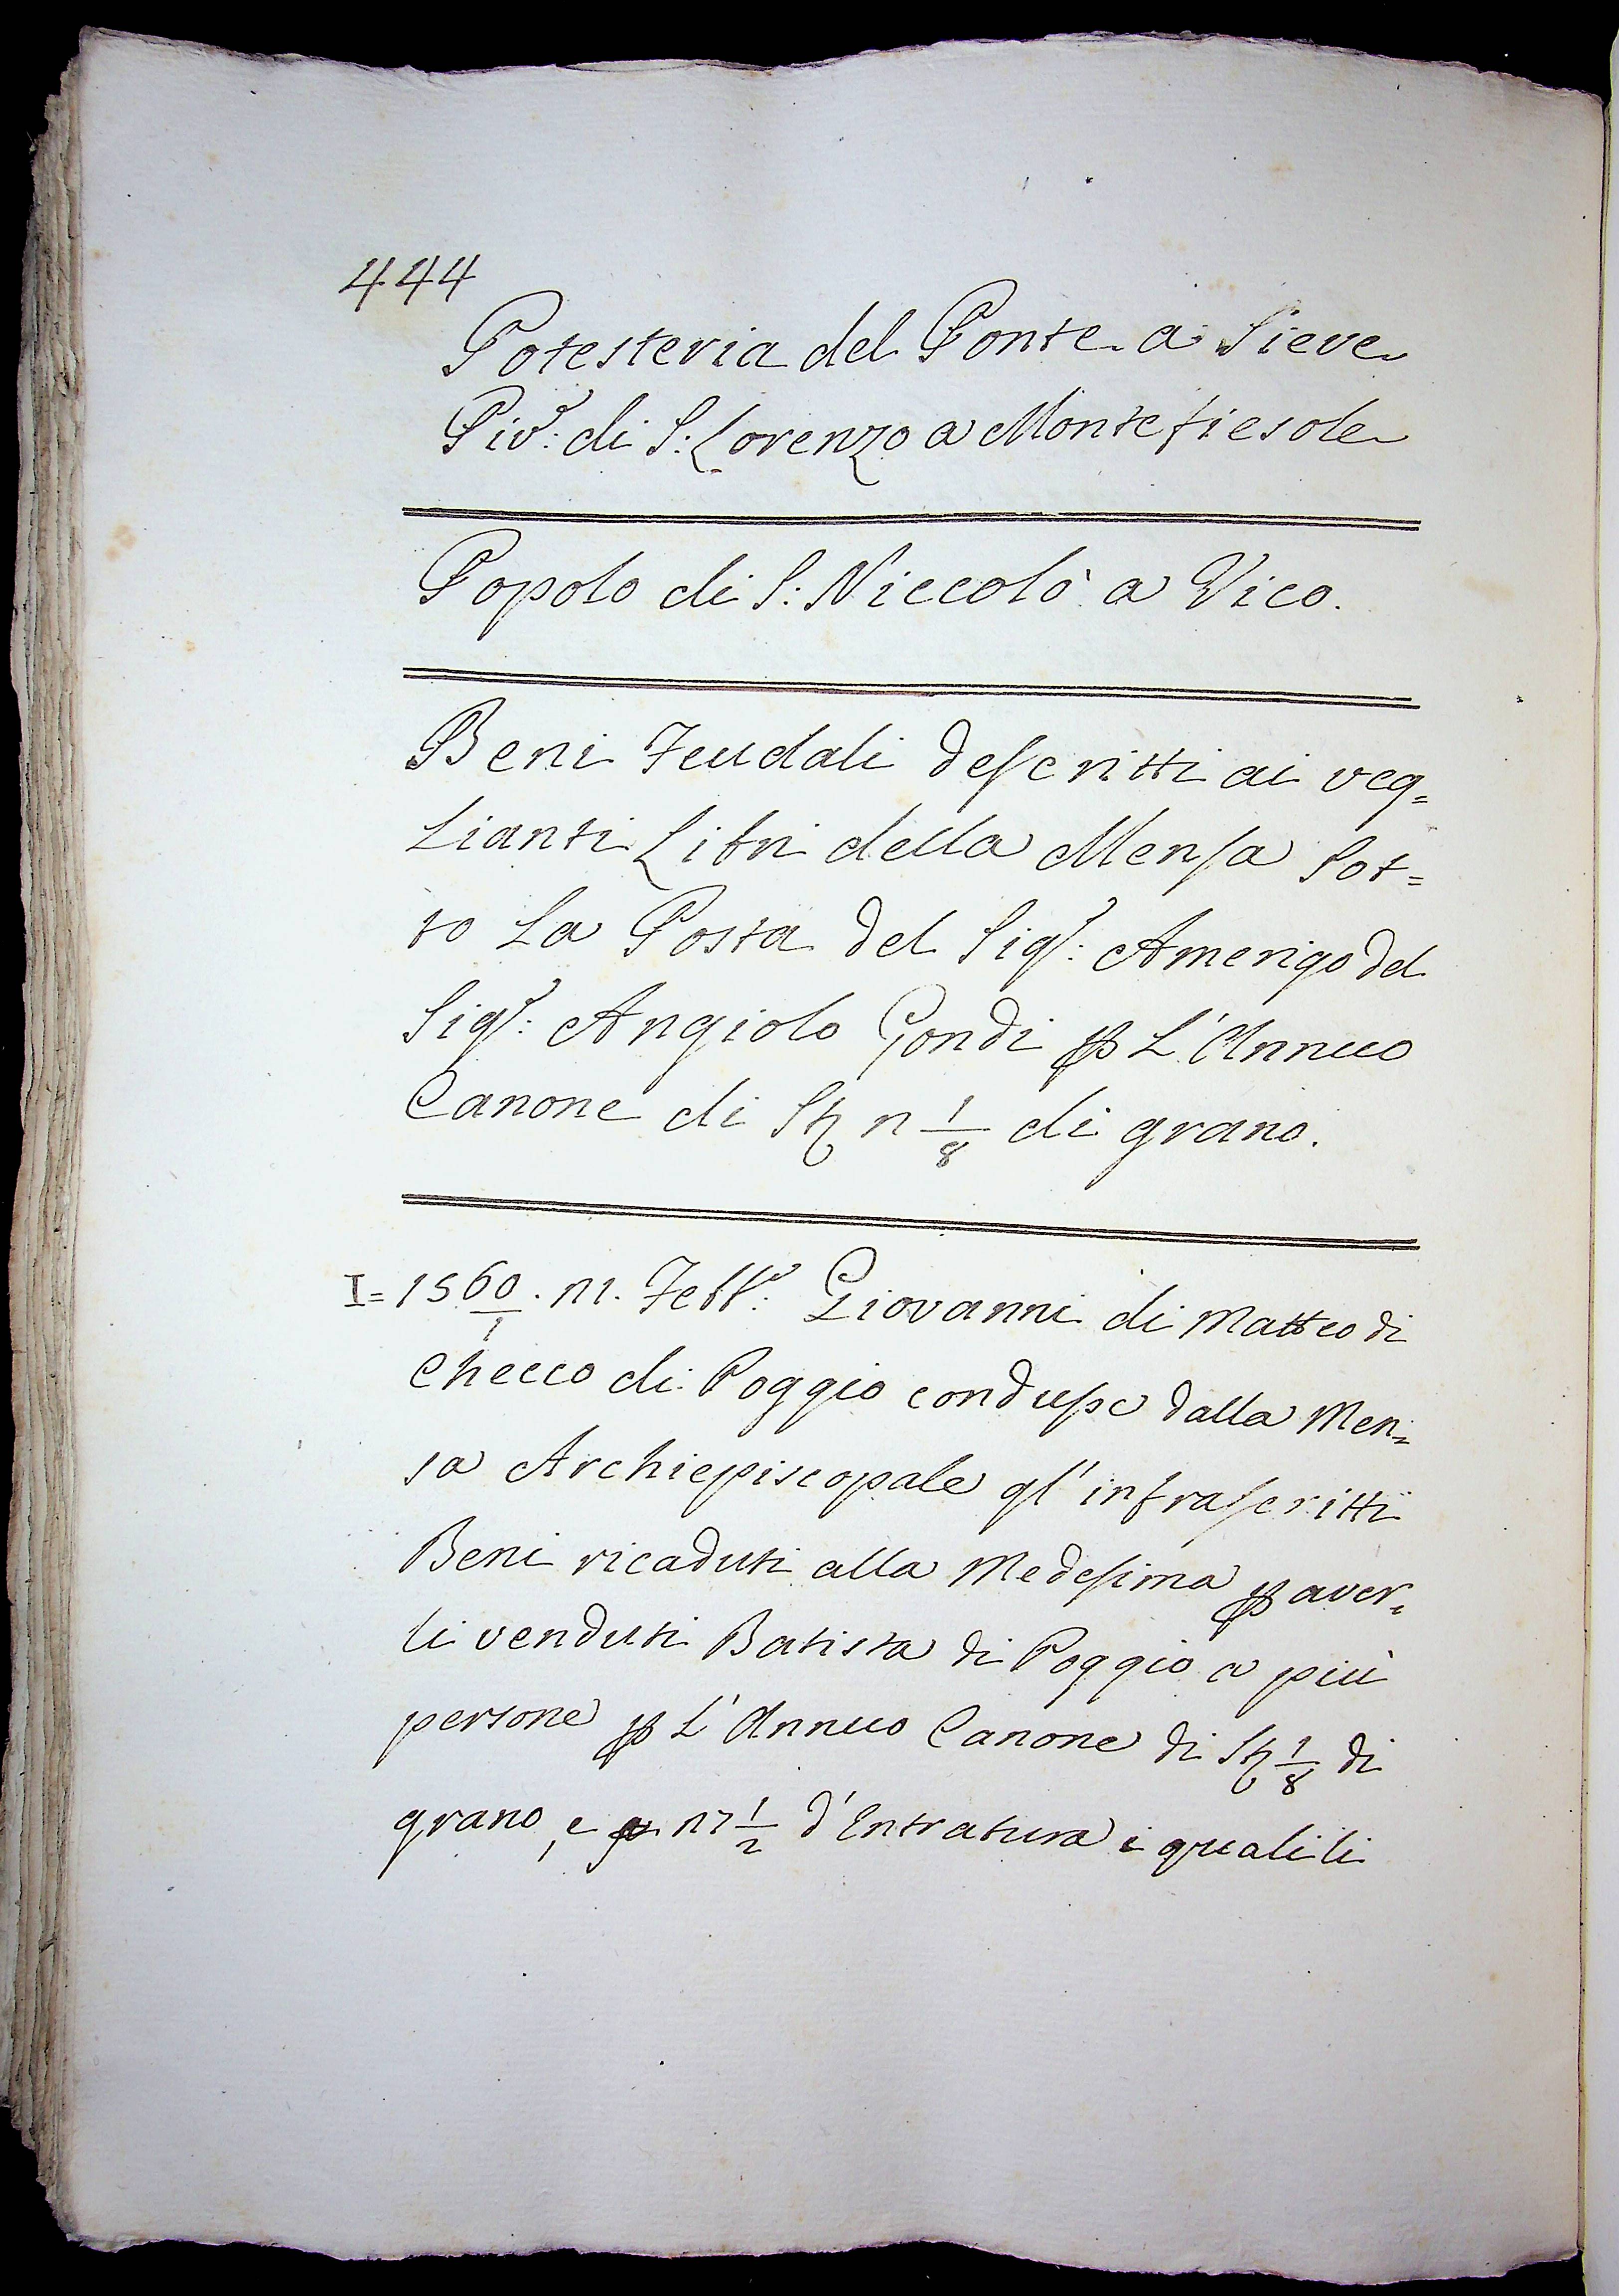 444
Potesteria del Ponte a Sieve
Piv.e: di S: Lorenzo a Montefiesole
Popolo di S: Niccolò a Vico.
Beni Feudali descritti ai veg=
lianti Libri della Mensa Sot=
to La Posta del Sigr: Amerigo del
Sigr: Angiolo Gondi ꝑ L'Annuo
Canone di St n 1/8 di grano.
I= 1560/1. 11. Febb.o: Giovanni di Matteo di
Checco di Poggio condusse dalla Men=
sa Archiepiscopale gl'infrascritti
Beni ricaduti alla Medesima ꝑ aver=
li venduti Batista di Poggio a più
persone ꝑ L'Annuo Canone di St 1/8 di
grano, e 17 1/2 d'Entratura i quali li